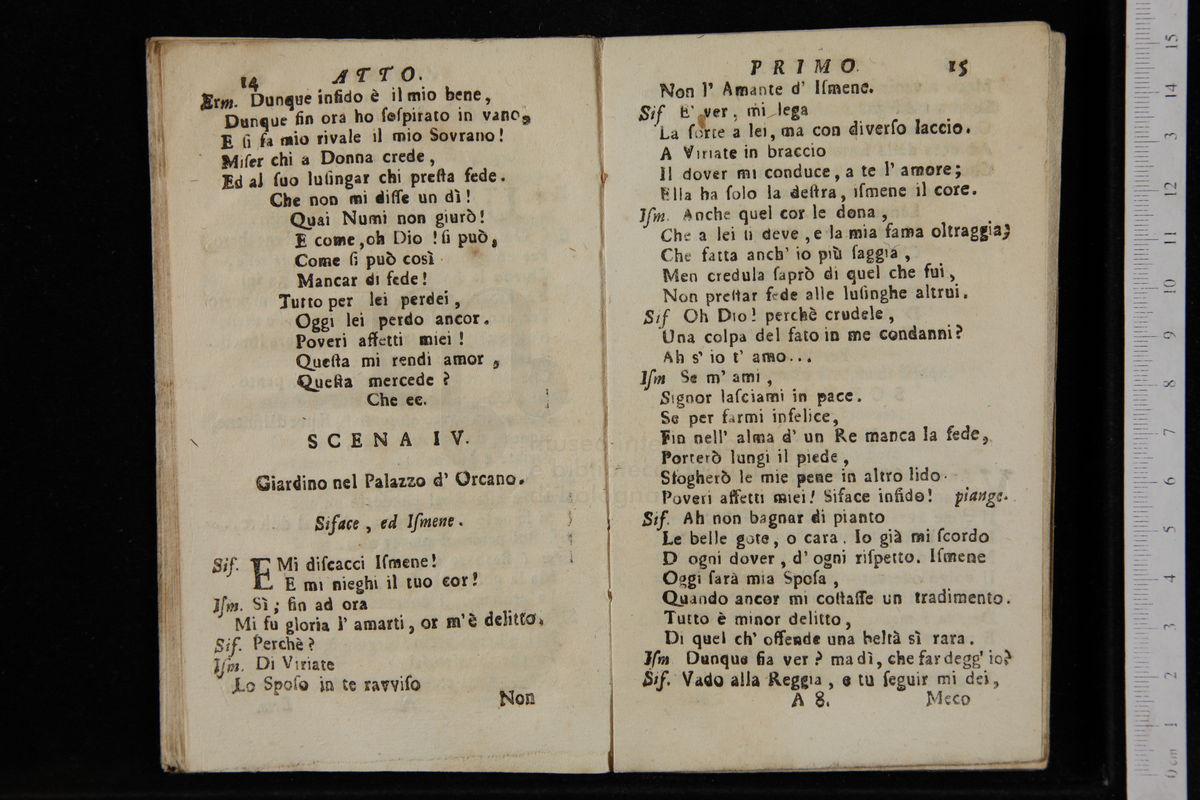 14 ATTO.
Erm. Dunque infido è il mio bene,
Dunque fin ora ho ſoſpirato in vano,
E ſi fa mio rivale il mio Sovrano!
Miſer chi a Donna crede,
Ed al ſuo luſingar chi preſta fede.
Che non mi diſſe un dì!
Quai Numi non giurò!
E come, oh Dio! ſi può,
Come ſi può così
Mancar di fede!
Tutto per lei perdei,
Oggi lei perdo ancor.
Poveri affetti miei!
Queſta mi rendi amor,
Queſta mercede?
Che ec.
SCENA IV.
Giardino nel Palazzo d' Orcano.
Siface, ed Iſmene.
Sif. E Mi diſcacci Iſmene!
E mi nieghi il tuo cor!
Iſm. Sì; fin ad ora
Mi fu gloria l' amarti, or m'è delitto.
Sif. Perchè?
Iſm. Di Viriate
Lo Spoſo in te ravviſo
Non
PRIMO. 15
Non l' Amante d' Iſmene.
Sif E' ver, mi lega
La ſorte a lei, ma con diverſo laccio.
A Viriate in braccio
Il dover mi conduce, a te l' amore;
Ella ha ſolo la deſtra, iſmene il core.
Iſm. Anche quel cor le dona,
Che a lei ſi deve, e la mia fama oltraggia;
Che fatta anch' io più ſaggia,
Men credula ſaprò di quel che fui,
Non preſtar fede alle luſinghe altrui.
Sif Oh Dio! perchè crudele,
Una colpa del fato in me condanni?
Ah s' io t' amo...
Iſm Se m' ami,
Signor laſciami in pace.
Se per farmi infelice,
Fin nell' alma d' un Re manca la fede,
Porterò lungi il piede,
Sfogherò le mie pene in altro lido.
Poveri affetti miei! Siface infido! piange.
Sif. Ah non bagnar di pianto
Le belle gote, o cara. Io già mi ſcordo
D ogni dover, d' ogni riſpetto. Iſmene
Oggi ſarà mia Spoſa,
Quando ancor mi coſtaſſe un tradimento.
Tutto è minor delitto,
Di quel ch' offende una beltà sì rara.
Iſm Dunque fia ver? ma dì, che far degg' io?
Sif. Vado alla Reggia, e tu ſeguir mi dei,
A 8. Meco
0 cm 1 2 3 4 5 6 7 8 9 10 11 12 13 14 15